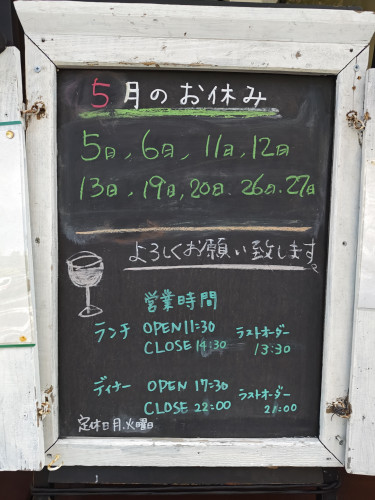 5月のお休み
5日、6日、11日、12日
13日、19日、20日、26日、27日
よろしくお願い致します
営業時間
ランチ OPEN 11:30 ラストオーダー
CLOSE 14:30 13:30
ディナー OPEN 17:30 ラストオーダー
CLOSE 22:00 21:00
定休日月.火曜日